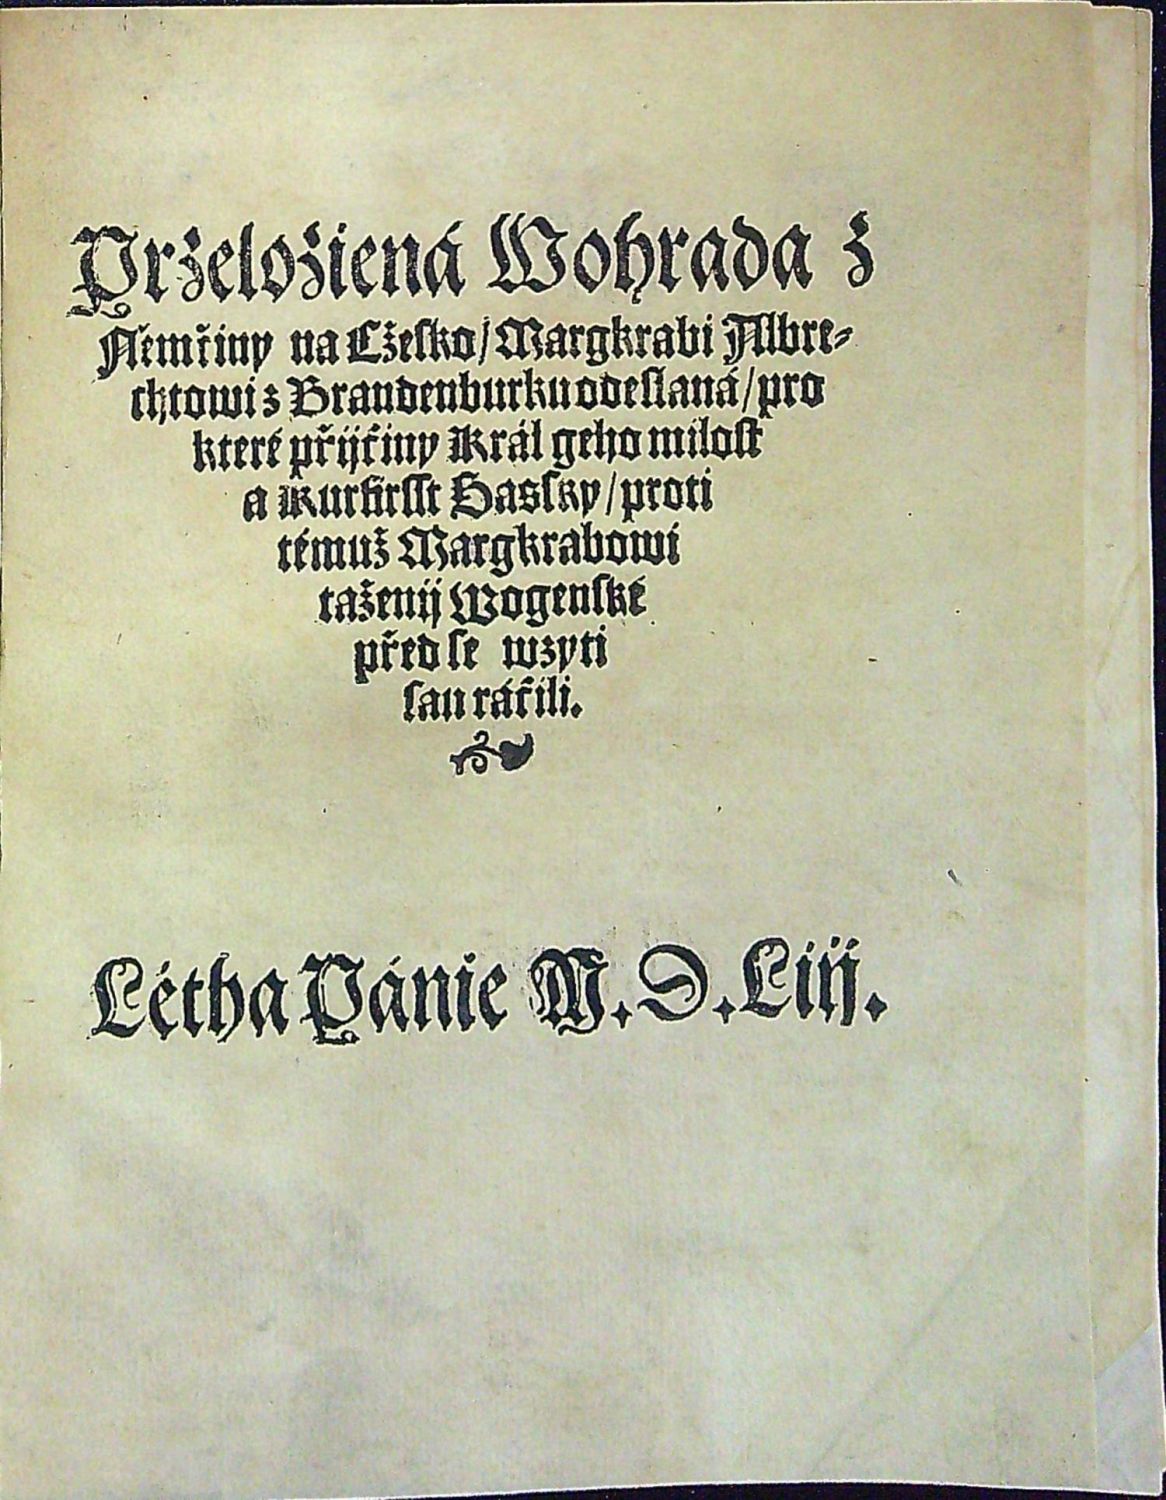 Przelożiená Wohrada z
Němčiny na Cžeſko / Margkrabi Albre⸗
chtowi z Brandenburku odeſlaná / pro
které přijčiny Král geho miloſt
a Kurfirſſt Saſſky / proti
témuž Margkrabowi
taženij Wogenſké
před ſe wzyti
ſau ráčili.
Létha Pánie M. D. Liij.